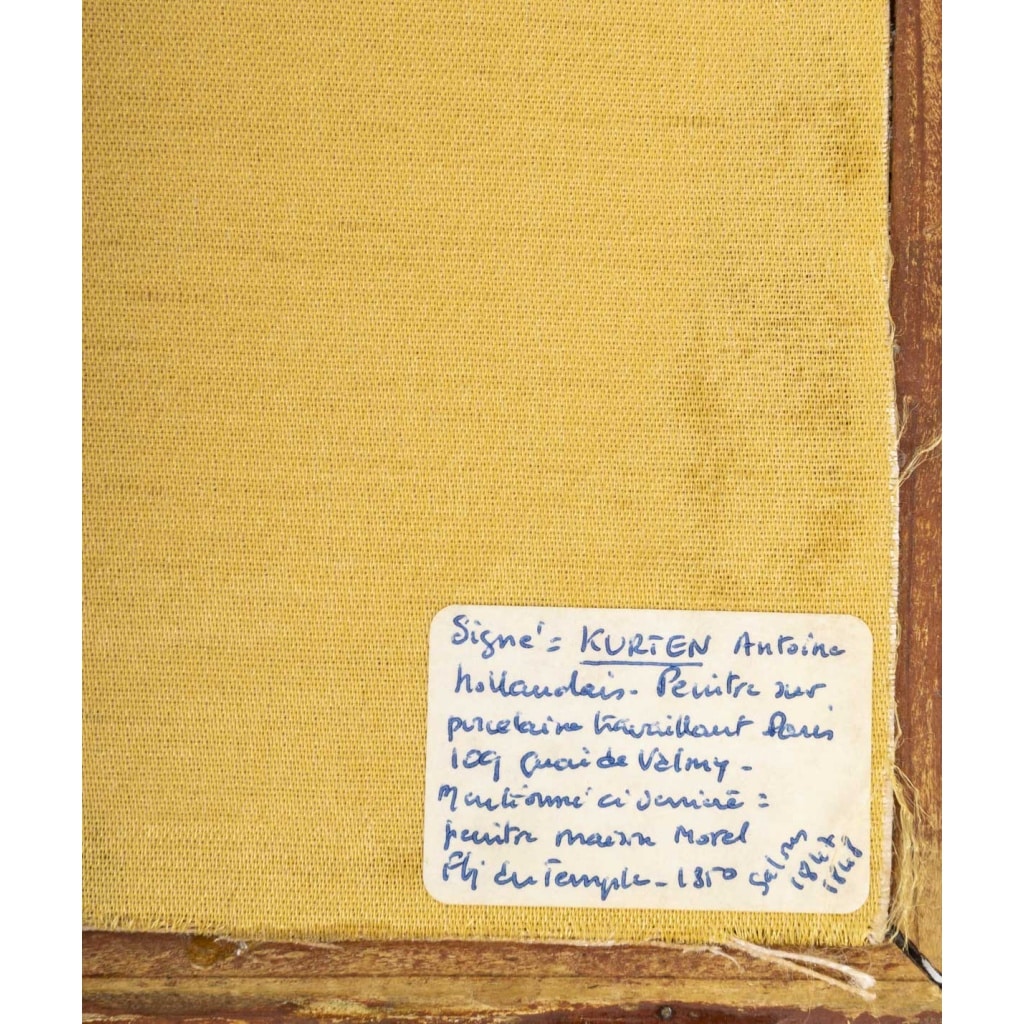 Signé = KURTEN Antoine
hollandais - Peintre sur
porcelaine travaillant Paris
109 Quai de Valmy -
Mentionné ci derrière =
peintre maison Morel
Fbg du Temple - 1850
Salons
1847
1848